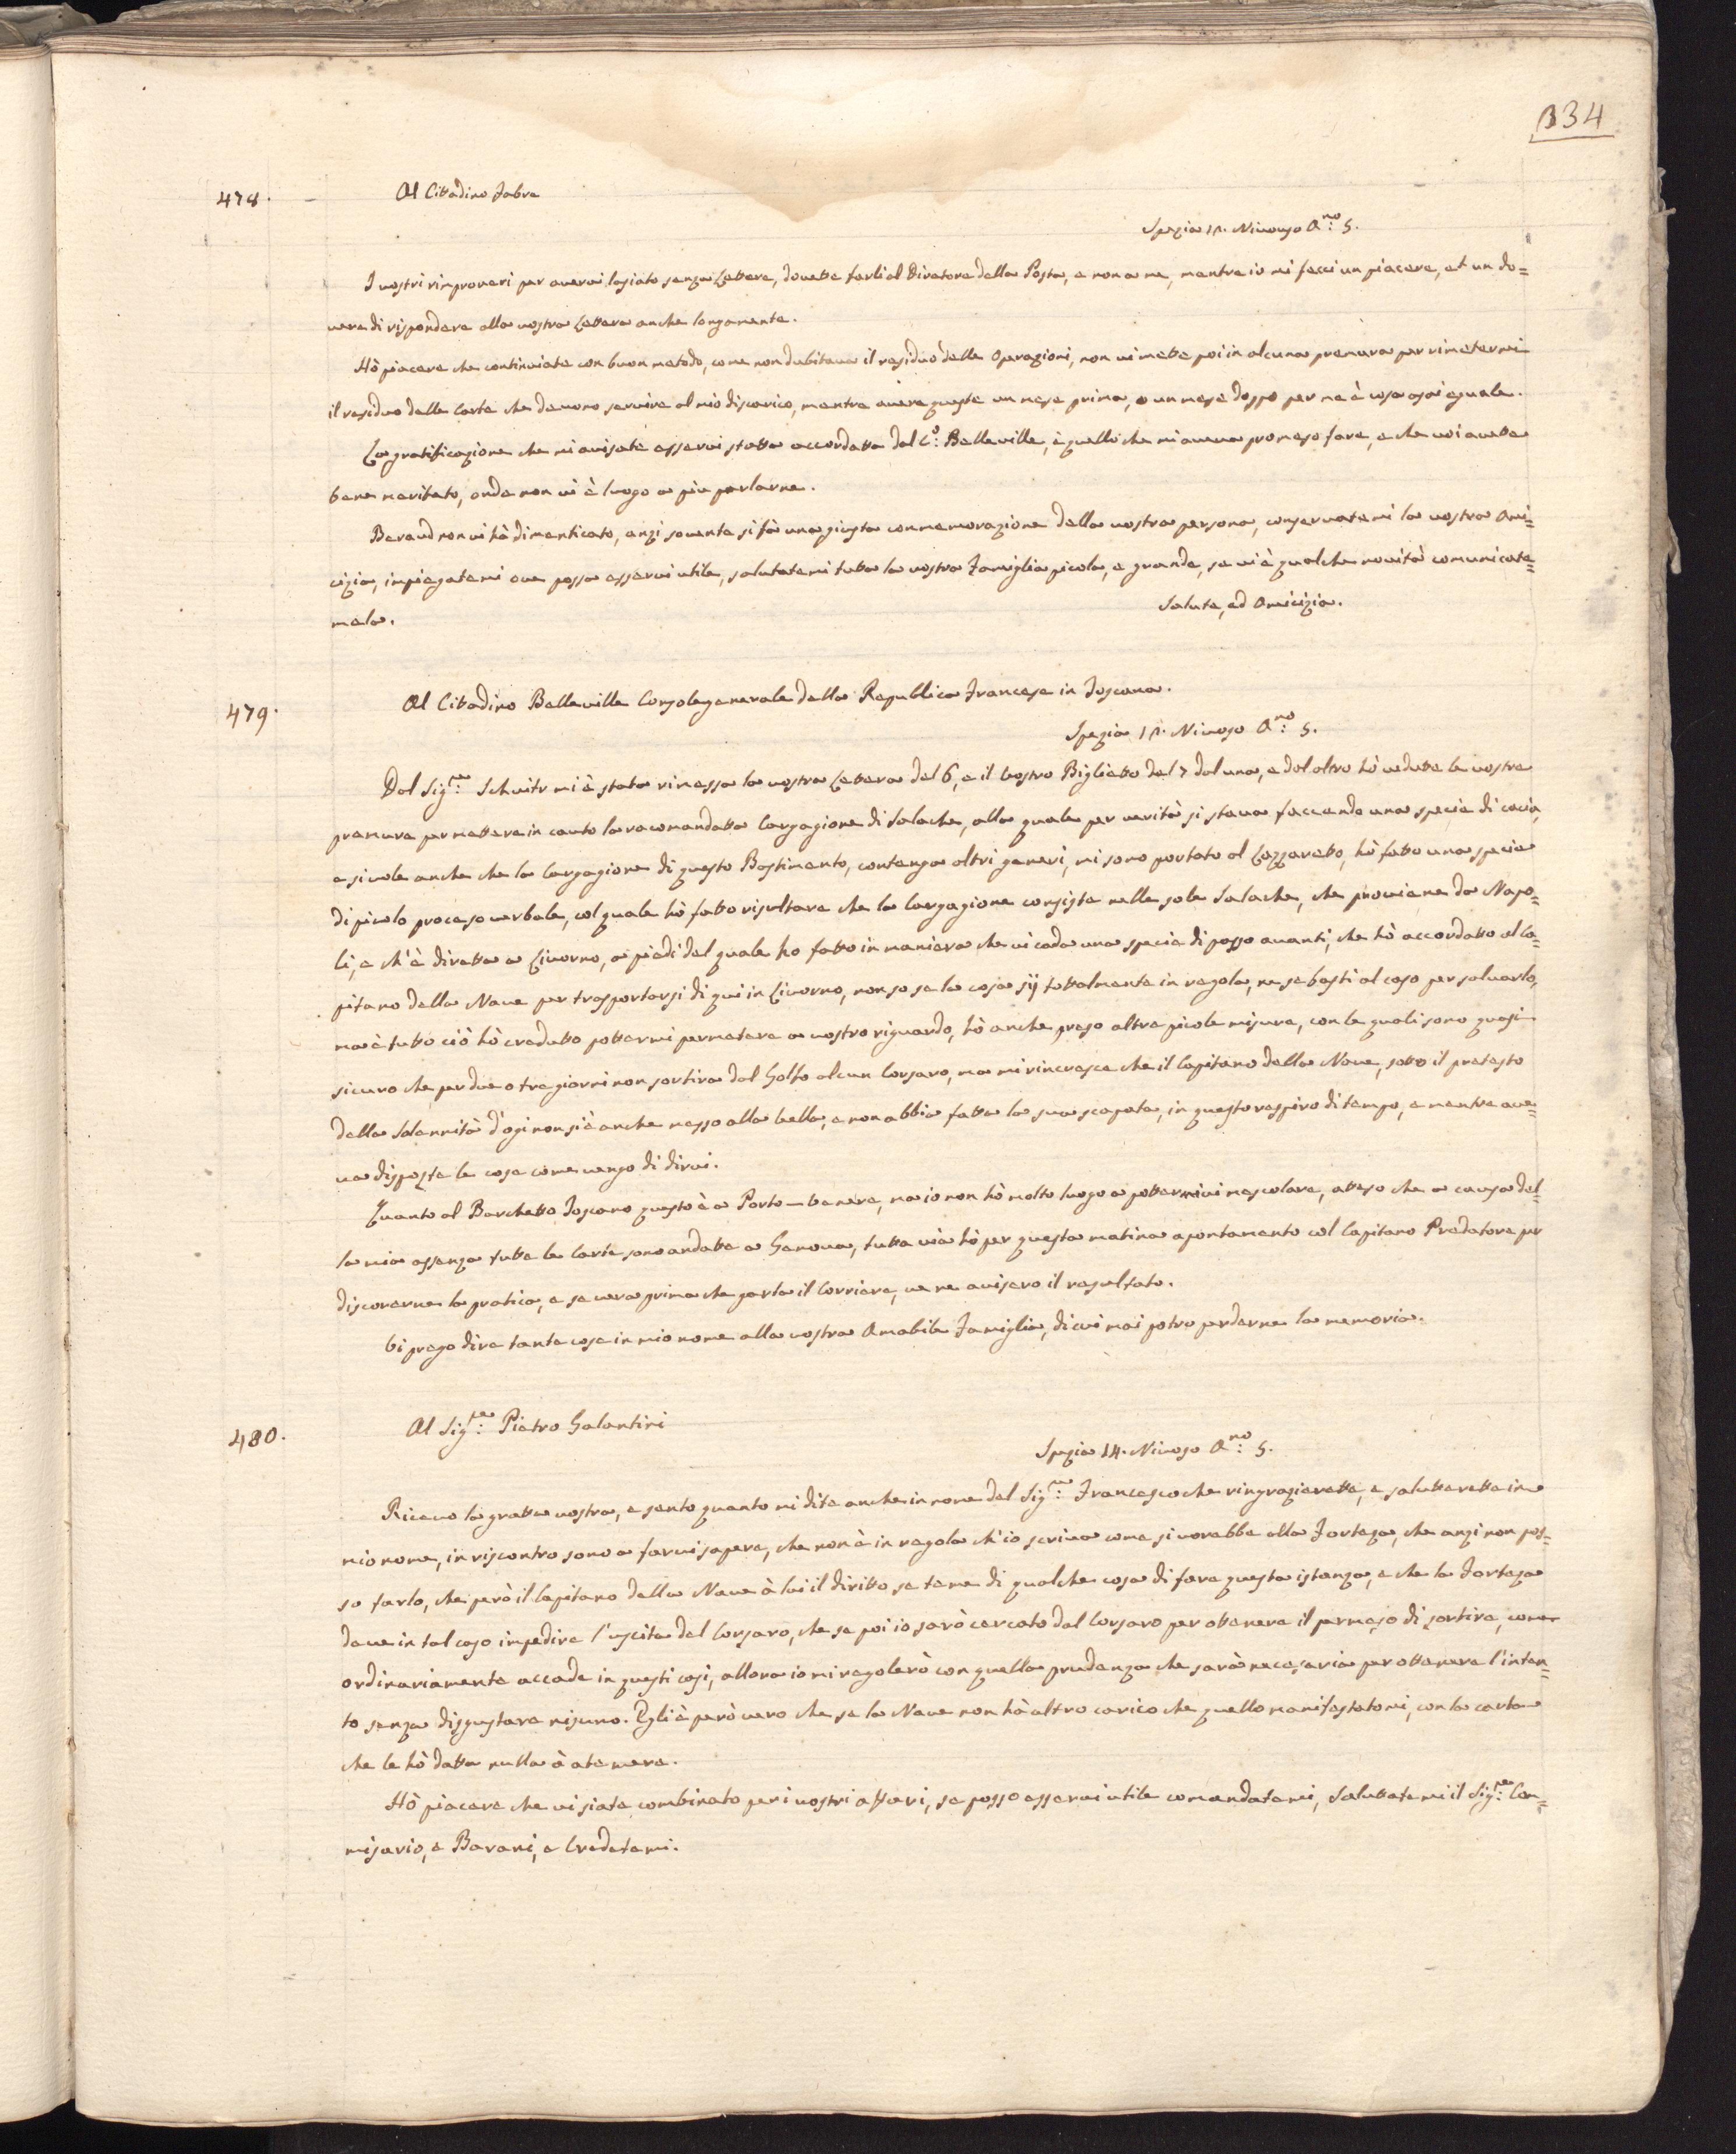 334
478. Al Cittadino Fabre
Spezia 12. Nivoso A.no 5.
I vostri rimproveri per avervi lasiato senza Lettere, dovette farli al Diretore della Posta, e non a me, mentre io mi feci un piacere, et un do=
vere di rispondere alla vostra Lettera anche longamente.
Hò piacere che continuiate con buon metodo, come non dubitava il residuo delle Operazioni, non vi mette poi in alcuna premura per rimetermi
il residuo delle Carte che devono servire al mio discarico, mentre avere queste un mese prima, o un mese doppo per me è cosa assai eguale.
La gratificazione che mi avisate esservi statta accordatta dal C.o Belleville, è quello che mi aveva promeso fare, e che voi avette
bene meritato, onde non vi è luogo a più parlarne.
Beraud non vi hà dimenticato, anzi sovente si fà una giusta commemorazione della vostra persona, conservatemi la vostra Ami=
cizia, impiegatemi ove possa esservi utile, salutatemi tutta la vostra Famiglia picola, e grande, se vi è qualche novità comunicate=
mela.
Salute, ed Amicizia.
479. Al Citadino Belleville Consolegenerale della Republica Francese in Toscana.
Spezia 12. Nivoso A.no 5.
Dal Sig.re Schuitr mi è stata rimessa la vostra Lettera del 6, e il Vostro Biglietto del 7 dal una, e dal altro hò vedutte le vostre
premure per mettere in cauto la racomandatta Cargagione di Salache, alla quale per verità si stava faccendo una specie di cacia,
e si vole anche che la Cargagione di questo Bastimento, contenga altri generi, mi sono portato al Lazzaretto, hò fatto una specie
di picolo proceso verbale, col quale hò fatto risultare che la Cargagione consiste nelle sole Salache, che proviene da Napo=
li, e ch'è diretta a Livorno, a piedi del quale ho fatto in maniera che vi cada una specie di passo avanti, che hò accordatto al Ca=
pitano della Nave per trasportarsi di qui in Livorno, non so se la cosa sij tottalmente in regola, ne se basti al caso per salvarlo,
ma è tutto ciò hò credutto pottermi permetere a vostro riguardo, hò anche preso altre picole misure, con le quali sono quasi
sicuro che per due o tre giorni non sortira dal Golfo alcun Corsaro, ma mi rincresce che il Capitano della Nave, sotto il pretesto
della Solennità d'ogi non si è anche messo alla vella, e non abbia fatta la sua scapata, in questo respiro di tempo, e mentre ave=
va disposte le cose come vengo di dirvi.
Quanto al Barchetto Toscano questo è a Porto-Venere, ma io non hò molto luogo a pottermivi mescolare, atteso che a causa del=
la mia assenza tutte le Carte sono andatte a Genova, tutta via hò per questa matina apontamento col Capitano Predatore per
discorerne la pratica, e se vera prima che parta il Corriere, ve ne avisero il resultato.
Vi prego dire tante cose in mio nome alla vostra Amabile Famiglia, di cui mai potro perderne la memoria.
480. Al Sig.re Pietro Galantini
Spezia 14. Nivoso A.no 5.
Ricevo la gratta vostra, e sento quanto mi dite anche in nome del Sig.re Francesco che ringrazierette, e saluterette in
mio nome, in riscontro sono a farvi sapere, che non è in regola ch'io scriva come si vorebbe alla Forteza, che anzi non pos=
so farlo, che però il Capitano della Nave à lui il diritto se teme di qualche cosa di fare questa istanza, e che la Forteza
deve in tal caso impedire l'uscita del Corsaro, che se poi io sarò cercato dal Corsaro per ottenere il permeso di sortire, come
ordinariamente accade in questi casi, allora io mi regolerò con quella prudenza che sarà necesaria per ottenere l'inten=
to senza disgustare nisuno. Egli è però vero che se la Nave non hà altro carico che quello manifestatomi, con la carta
che le hò datta nulla à a temere.
Hò piacere che vi siate combinato per i vostri affari, se posso esservi utile comandatemi, Saluttatemi il Sig.re Com=
misario, e Barani, e Credetemi.